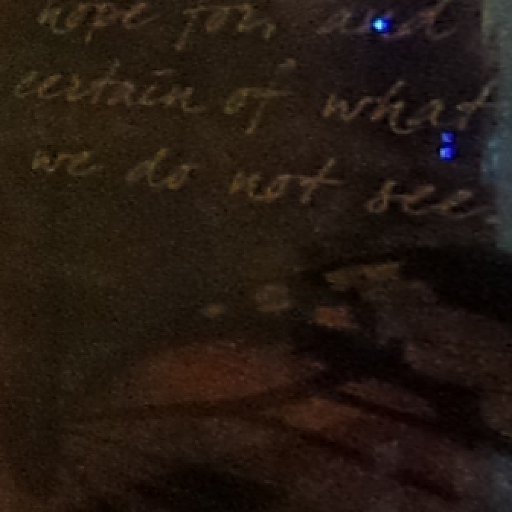 hope for, and
certain of what
we do not see.